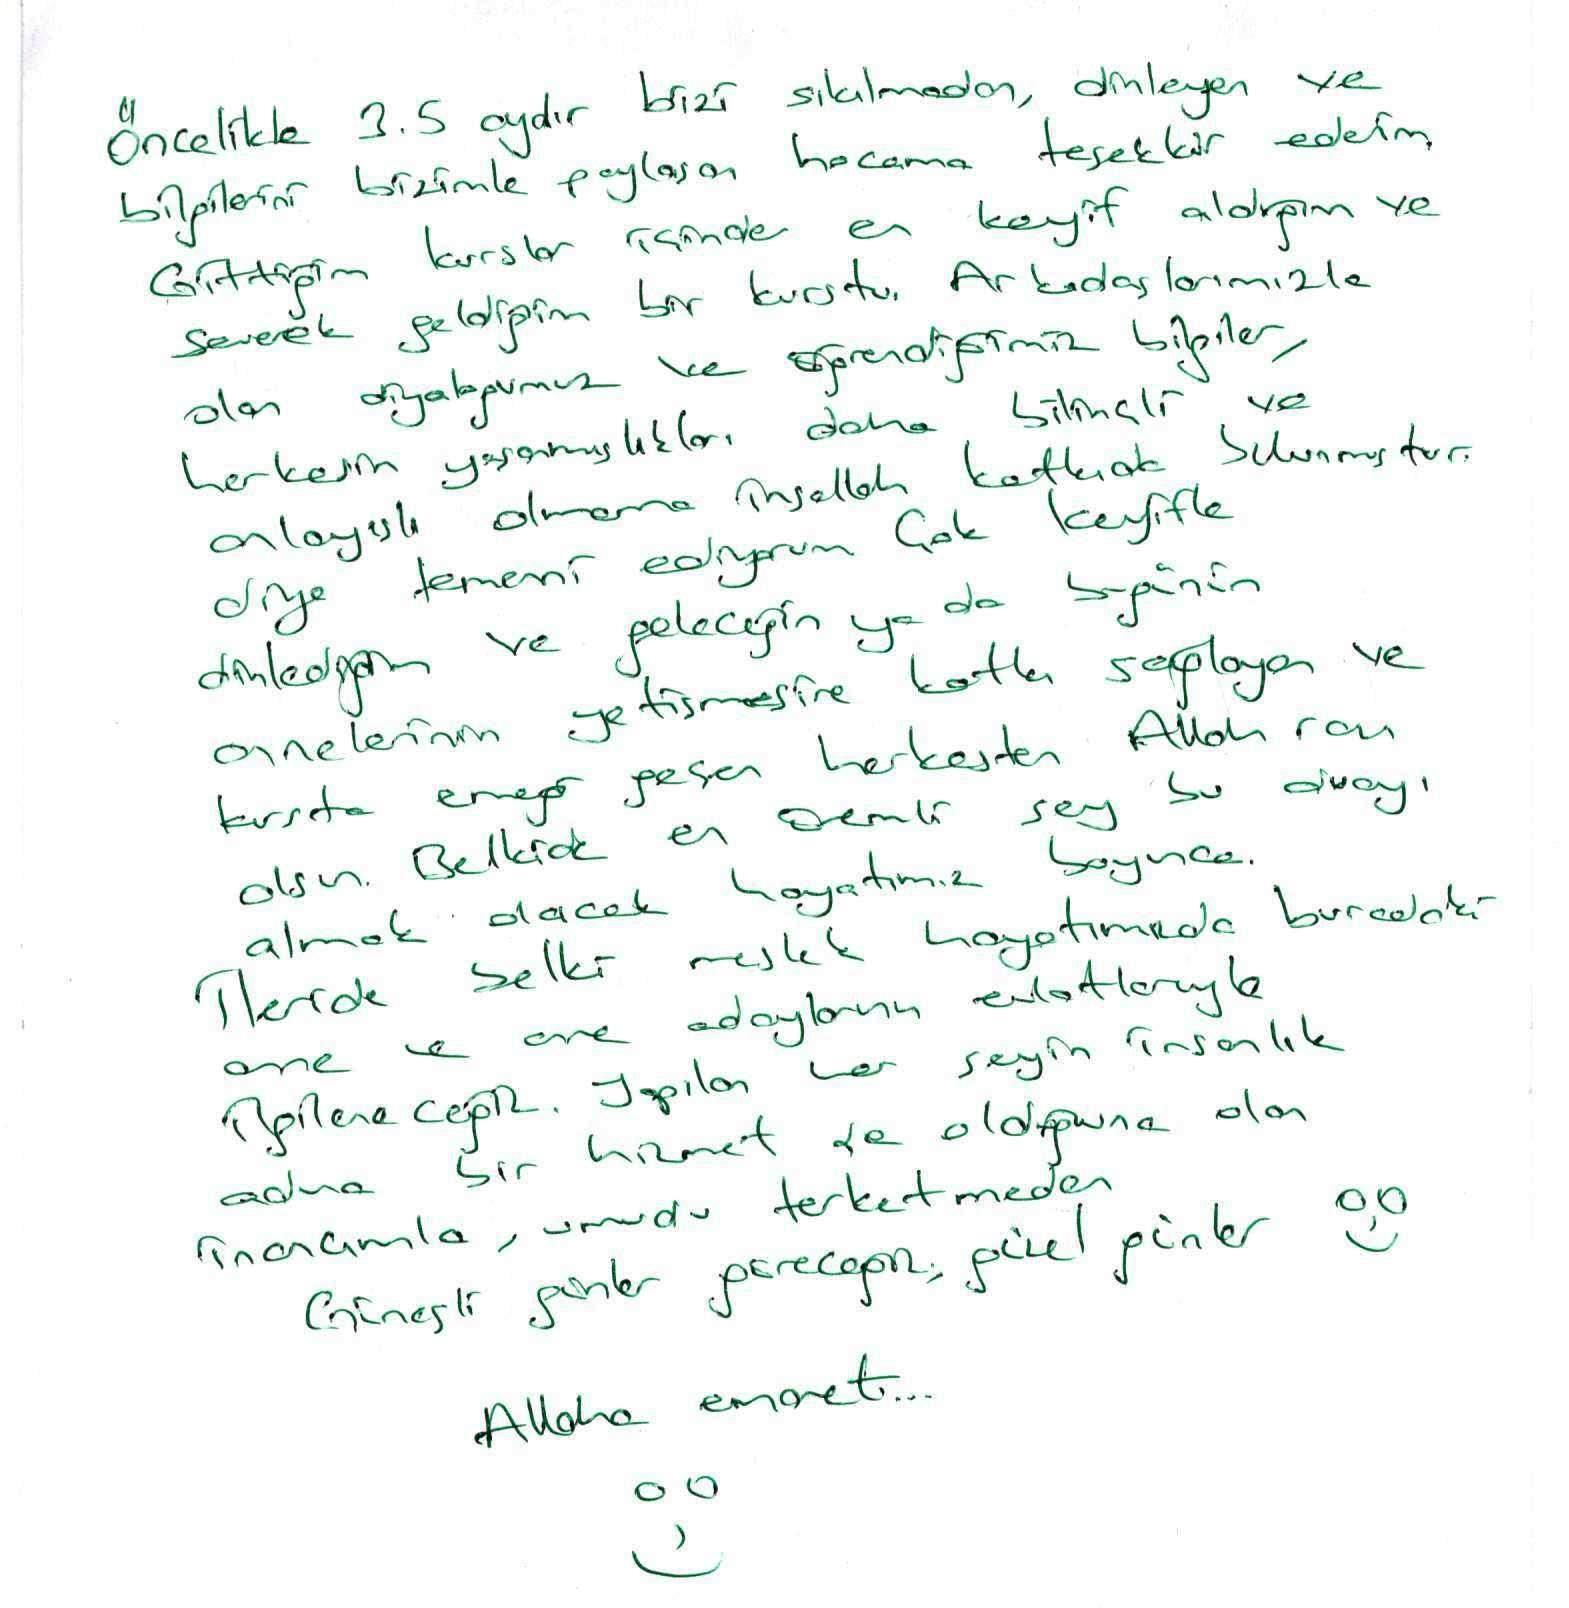 Öncelikle 3.5 aydır bizi sıkılmadan, dinleyen ve
bilgilerini bizimle paylaşan hocama teşekkür ederim.
Gittiğim kurslar içinde en keyif aldığım ve
severek geldiğim bir kurstu. Arkadaşlarımızla
olan diyaloğumuz ve öğrendiğimiz bilgiler,
herkesin yaşanmışlıkları daha bilinçli ve
anlayışlı olmama inşallah katkıda bulunmuştur.
diye temenni ediyorum Çok keyifle
dinlediğim ve geleceğin ya da bugünün
annelerinin yetişmesine katkı sağlayan ve
kursta emeği geçen herkesten Allah razı
olsun. Belkide en önemli şey bu duayı
almak olacak hayatımız boyunca.
İleride belki meslek hayatımızda buradaki
anne ve anne adaylarının evlatlarıyla
ilgileneceğiz. Yapılan her şeyin insanlık
adına bir hizmet de olduğuna olan
inancımla, umudu terketmeden
Güneşli günler göreceğiz, güzel günler
Allaha emanet...